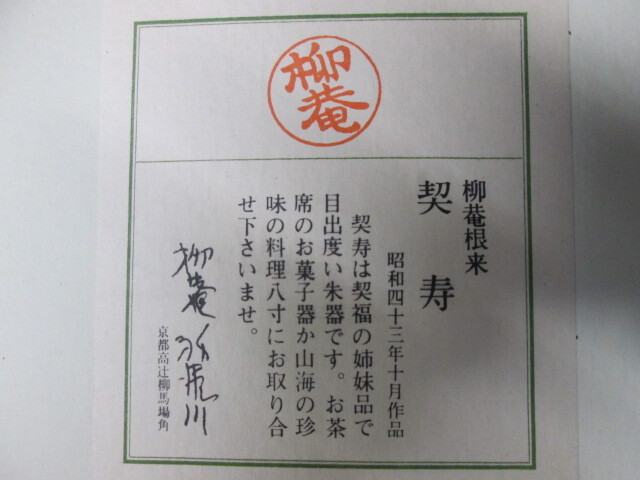 柳菴
柳菴根来
契寿
昭和四十三年十月作品
契寿は契福の姉妹品で
目出度い朱器です。お茶
席のお菓子器か山海の珍
味の料理八寸にお取り合
せ下さいませ。
柳菴
京都高辻柳馬場角